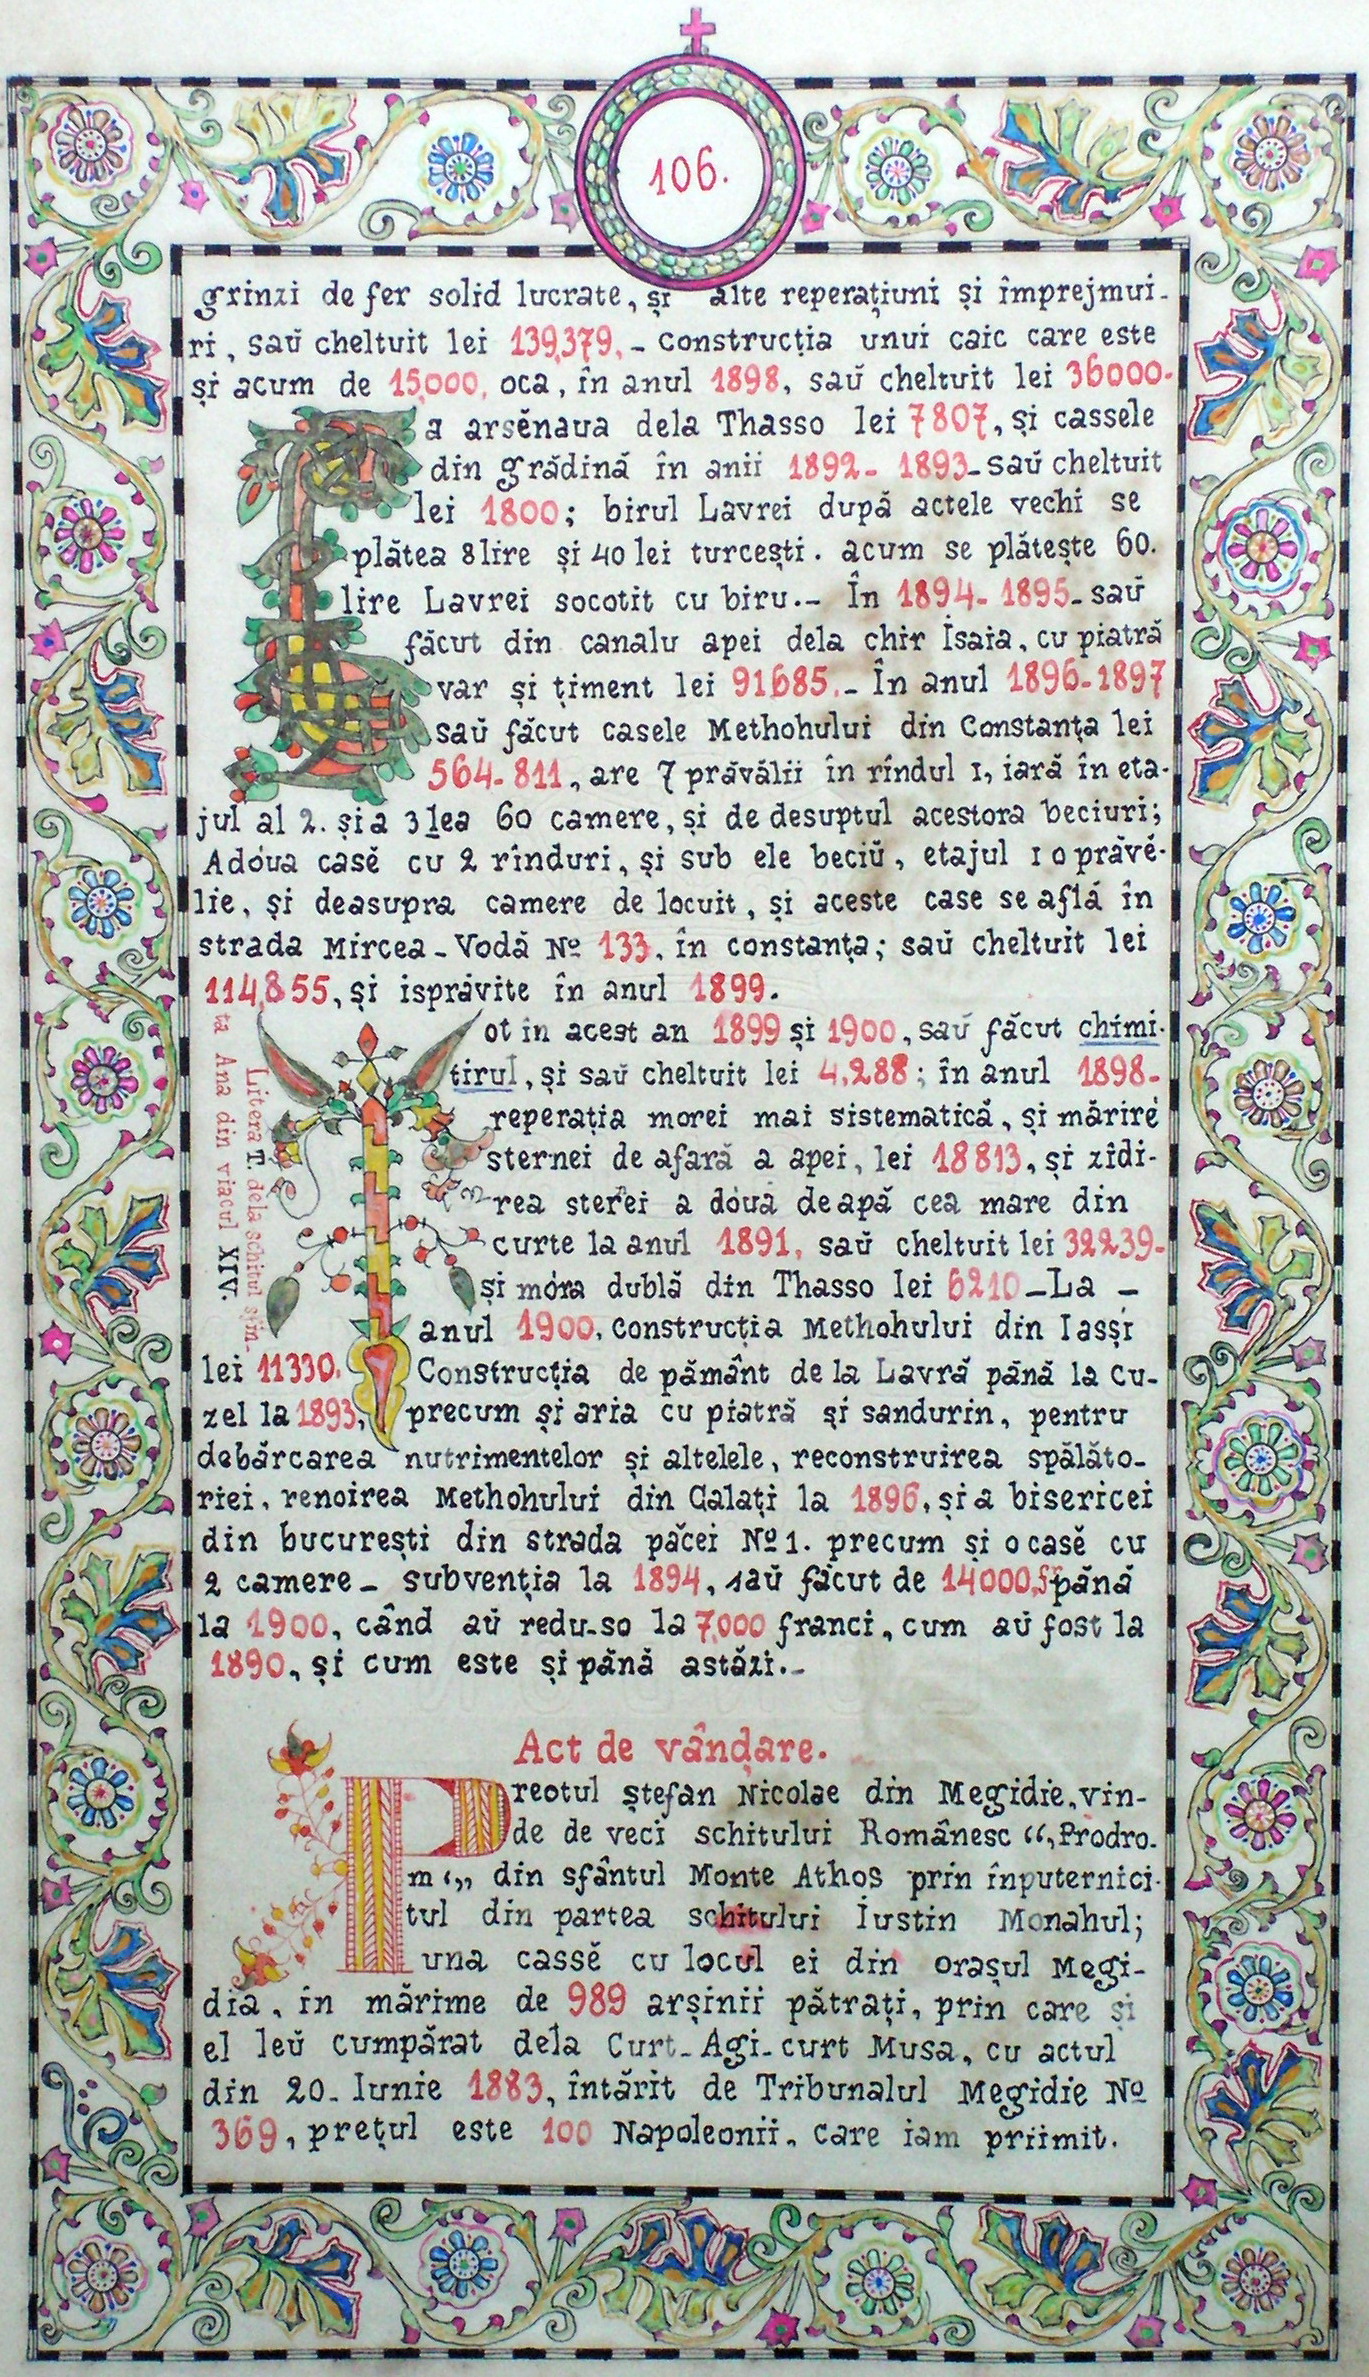 106.
grinzi de fer solid lucrate, și alte reperațiuni și împrejmui-
ri, saŭ cheltuit lei 139,379.- construcția unui caic care este
și acum de 15,000, oca, în anul 1898, saŭ cheltuit lei 36000.
La arsĕnaua dela Thasso lei 7807, și cassele
din grădină în anii 1892- 1893- saŭ cheltuit
lei 1800; birul Lavrei după actele vechi se
plătea 8 lire și 40 lei turcești. acum se plătește 60.
lire Lavrei socotit cu biru.- În 1894- 1895- saŭ
făcut din canalu apei dela chir Isaia, cu piatră
var și țiment lei 91685.- În anul 1896-1897
saŭ făcut casele Methohului din Constanța lei
564-811, are 7 prăvălii în rîndul I, iară în eta-
jul al 2. și a 3 lea 60 camere, și de desuptul acestora beciuri;
Adóua casĕ cu 2 rînduri, și sub ele beciŭ, etajul I o prăvĕ-
lie, și deasupra camere de locuit, și aceste case se află în
strada Mircea-Vodă № 133, în constanța; saŭ cheltuit lei
114,855, și isprăvite în anul 1899.
Tot în acest an 1899 și 1900, saŭ făcut chimi-
tirul, și saŭ cheltuit lei 4,288; în anul 1898-
reperația morei mai sistematică, și mărire
sternei de afară a apei, lei 18813, și zîdi-
rea sterei a dóua de apă cea mare din
curte la anul 1891, saŭ cheltuit lei 32239-
și móra dublă din Thasso lei 6210 - La -
anul 1900, construcția Methohului din Iassi
lei 11330. Construcția de pământ de la Lavră până la cu-
zel la 1893, precum și aria cu piatră și sandurin, pentru
debărcarea nutrimentelor și altelele, reconstruirea spălăto-
riei, renoirea Methohului din Galați la 1896, și a bisericei
din bucurești din strada păcei № 1. precum și o casĕ cu
2 camere - subvenția la 1894, saŭ făcut de 14000, până
la 1900, când aŭ redu-so la 7,000 franci, cum aŭ fost la
1890, și cum este și până astăzi.-
Litera T. dela schitul sfin-
ta Ana din viacul XIV.
Act de vândare.
Preotul ștefan Nicolae din Megidie, vin-
de de veci schitului Românesc “,Prodro-
m‘„ din sfântul Monte Athos prin înputernici-
tul din partea schitului Iustin Monahul;
una cassĕ cu locul ei din orașul Megi-
dia, în mărime de 989 arșinii pătrați, prin care și
el leŭ cumpărat dela Curt-Agi-curt Musa, cu actul
din 20- Iunie 1883, întărit de Tribunalul Megidie №
369, prețul este 100 Napoleonii, care iam priimit.